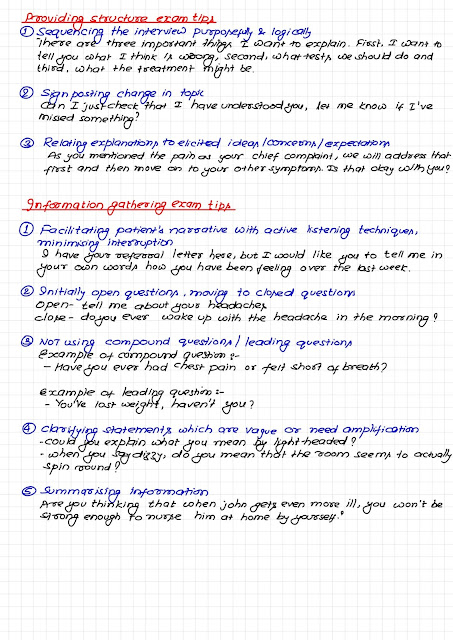 Providing structure exam tips
① Sequencing the interview purposefully & logically
There are three important things I want to explain. First, I want to
tell you what I think is wrong, second, what tests we should do and
third, what the treatment might be.
② Signposting change in topic
Can I just check that I have understood you, let me know if I've
missed something?
③ Relating explanations to elicited ideas/concerns/expectations
As you mentioned the pain as your chief complaint, we will address that
first and then move on to your other symptoms. Is that okay with you?
Information gathering exam tips
① Facilitating patient's narrative with active listening techniques,
minimising interruption
I have your referral letter here, but I would like you to tell me in
your own words how you have been feeling over the last week.
② Initially open questions, moving to closed questions
Open- tell me about your headaches
close- do you ever wake up with the headache in the morning?
③ Not using compound questions/leading questions
Example of compound question:-
- Have you ever had chest pain or felt short of breath?
Example of leading question:-
- You've lost weight, haven't you?
④ Clarifying statements which are vague or need amplification
- could you explain what you mean by light-headed?
- when you say dizzy, do you mean that the room seems to actually
spin round?
⑤ Summarising information
Are you thinking that when john gets even more ill, you won't be
strong enough to nurse him at home by yourself?